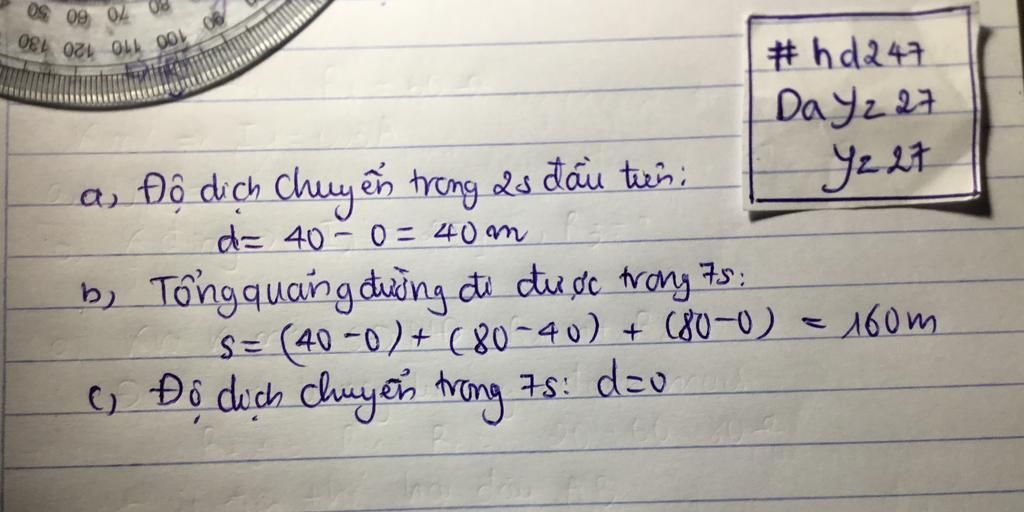 50 60 70 80 90
130 120 110 100
#hd247
Dayz27
yz27
a, Độ dịch chuyển trong 2s đầu tiên:
d= 40 - 0 = 40m
b, Tổng quảng đường đi được trong 7s:
s= (40-0) + (80-40) + (80-0) = 160m
c, Độ dịch chuyển trong 7s: d=0